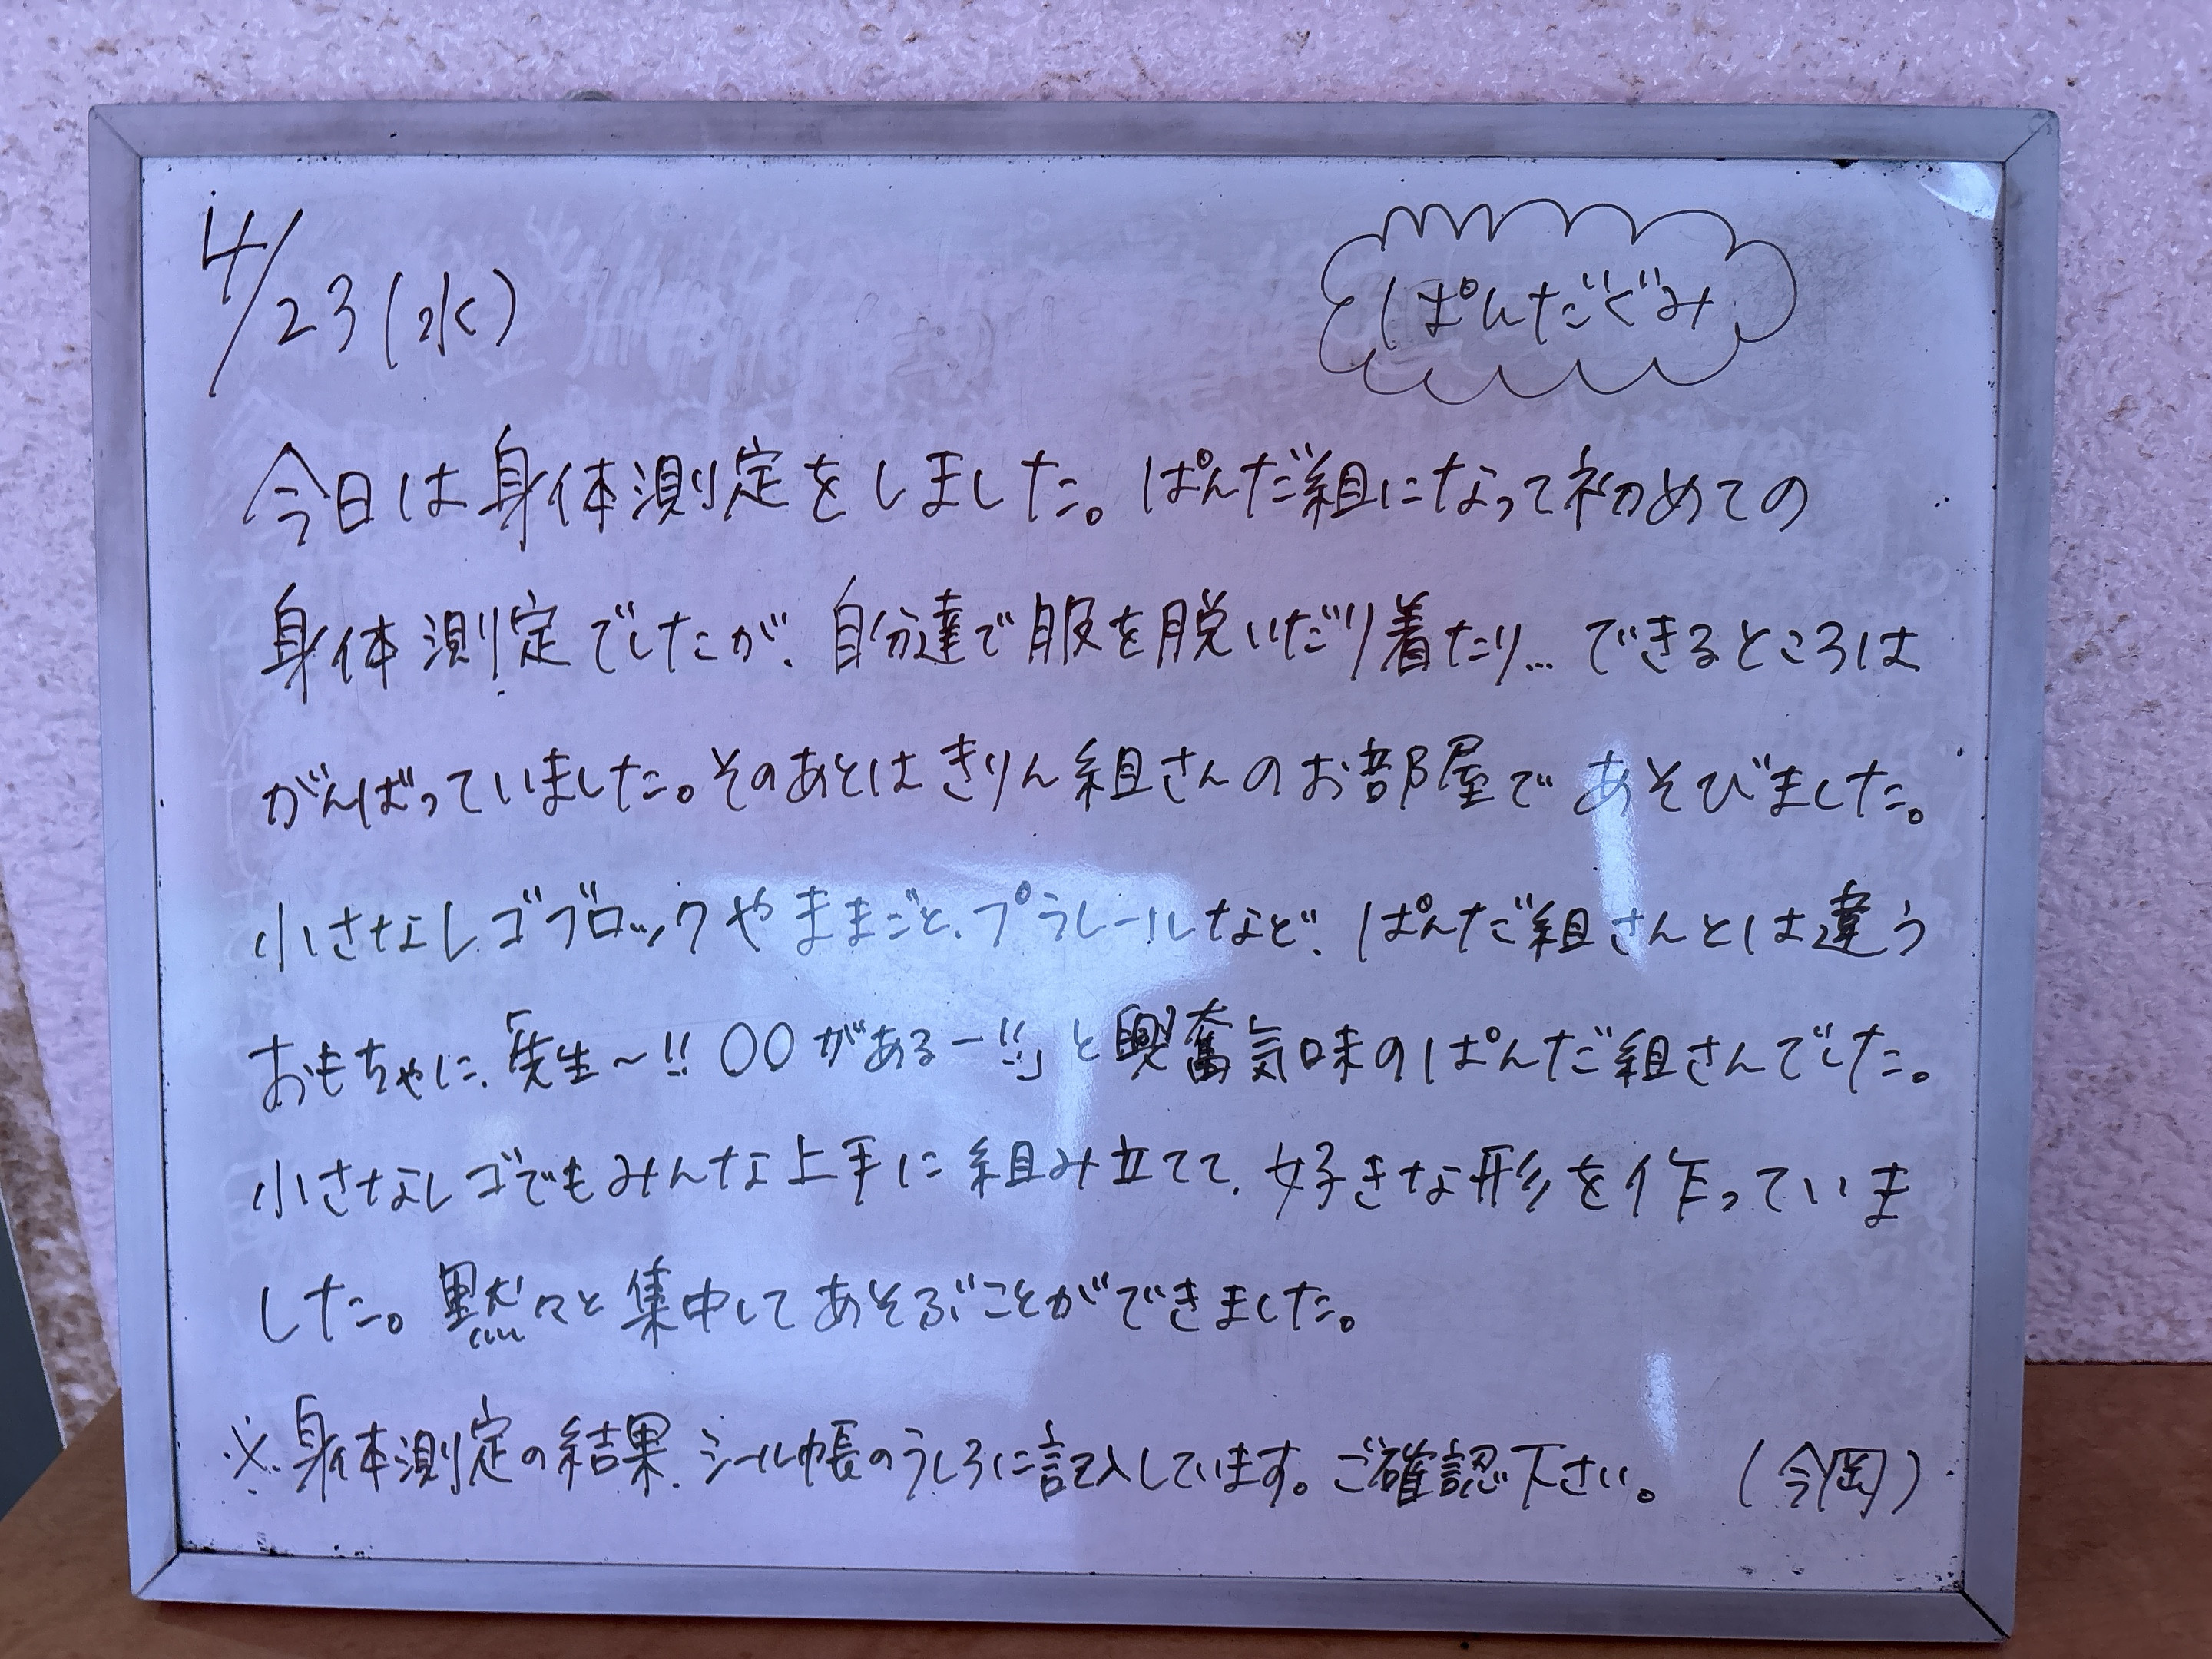 4/23(水)
ぱんだぐみ
今日は身体測定をしました。ぱんだ組になって初めての
身体測定でしたが、自分達で服を脱いだり着たり…できるところは
がんばっていました。そのあとはきりん組さんのお部屋であそびました。
小さなレゴブロックやままごと、プラレールなど、ぱんだ組さんとは違う
おもちゃに、「先生〜!! 〇〇があるー!!」と興奮気味のぱんだ組さんでした。
小さなレゴでもみんな上手に組み立てて、好きな形を作っていま
した。黙々と集中してあそぶことができました。
※身体測定の結果、シール帳のうしろに記入しています。ご確認下さい。 (今岡)